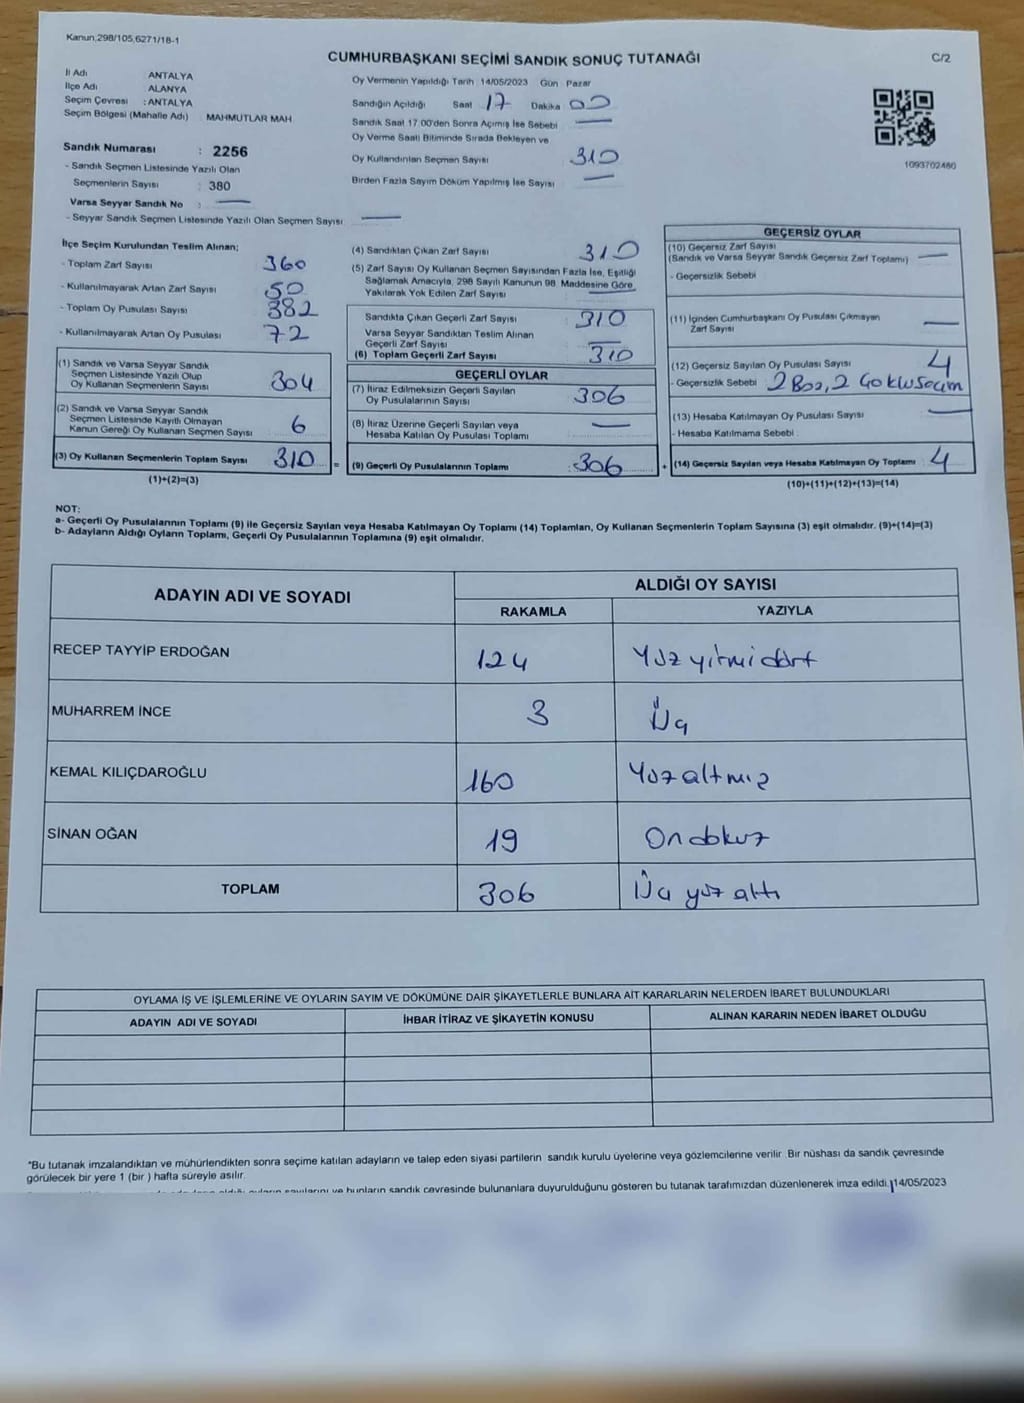 Kanun;298/105,6271/18-1
CUMHURBAŞKANI SEÇİMİ SANDIK SONUÇ TUTANAĞI
C/2
İl Adı ANTALYA
İlçe Adı ALANYA
Seçim Çevresi : ANTALYA
Seçim Bölgesi (Mahalle Adı) MAHMUTLAR MAH
Sandık Numarası : 2256
- Sandık Seçmen Listesinde Yazılı Olan
Seçmenlerin Sayısı : 380
Varsa Seyyar Sandık No : —
- Seyyar Sandık Seçmen Listesinde Yazılı Olan Seçmen Sayısı —
Oy Vermenin Yapıldığı Tarih 14/05/2023 Gün Pazar
Sandığın Açıldığı Saat 17 Dakika 00
Sandık Saat 17.00'den Sonra Açımış İse Sebebi —
Oy Verme Saati Bitiminde Sırada Bekleyen ve
Oy Kullandırılan Seçmen Sayısı 310
Birden Fazla Sayım Döküm Yapılmış İse Sayısı —
1093702480
İlçe Seçim Kurulundan Teslim Alınan;
- Toplam Zarf Sayısı 360
- Kullanılmayarak Artan Zarf Sayısı 50
- Toplam Oy Pusulası Sayısı 382
- Kullanılmayarak Artan Oy Pusulası 72
(1) Sandık ve Varsa Seyyar Sandık
Seçmen Listesinde Yazılı Olup
Oy Kullanan Seçmenlerin Sayısı 304
(2) Sandık ve Varsa Seyyar Sandık
Seçmen Listesinde Kayıtlı Olmayan
Kanun Gereği Oy Kullanan Seçmen Sayısı 6
(3) Oy Kullanan Seçmenlerin Toplam Sayısı 310 =
(1)+(2)=(3)
(4) Sandıktan Çıkan Zarf Sayısı 310
(5) Zarf Sayısı Oy Kullanan Seçmen Sayısından Fazla İse, Eşitliği
Sağlamak Amacıyla, 298 Sayılı Kanunun 98. Maddesine Göre
Yakılarak Yok Edilen Zarf Sayısı —
Sandıkta Çıkan Geçerli Zarf Sayısı 310
Varsa Seyyar Sandıktan Teslim Alınan
Geçerli Zarf Sayısı —
(6) Toplam Geçerli Zarf Sayısı 310
GEÇERLİ OYLAR
(7) İtiraz Edilmeksizin Geçerli Sayılan
Oy Pusulalarının Sayısı 306
(8) İtiraz Üzerine Geçerli Sayılan veya
Hesaba Katılan Oy Pusulası Toplamı —
(9) Geçerli Oy Pusulalarının Toplamı : 306 +
GEÇERSİZ OYLAR
(10) Geçersiz Zarf Sayısı
(Sandık ve Varsa Seyyar Sandık Geçersiz Zarf Toplamı) —
- Geçersizlik Sebebi
(11) İçinden Cumhurbaşkanı Oy Pusulası Çıkmayan
Zarf Sayısı —
(12) Geçersiz Sayılan Oy Pusulası Sayısı 4
- Geçersizlik Sebebi 2 Boş, 2 Çoklu Seçim
(13) Hesaba Katılmayan Oy Pusulası Sayısı —
- Hesaba Katılmama Sebebi
(14) Geçersiz Sayılan veya Hesaba Katılmayan Oy Toplamı 4
(10)+(11)+(12)+(13)=(14)
NOT:
a- Geçerli Oy Pusulalarının Toplamı (9) ile Geçersiz Sayılan veya Hesaba Katılmayan Oy Toplamı (14) Toplamları, Oy Kullanan Seçmenlerin Toplam Sayısına (3) eşit olmalıdır. (9)+(14)=(3)
b- Adayların Aldığı Oyların Toplamı, Geçerli Oy Pusulalarının Toplamına (9) eşit olmalıdır.
ADAYIN ADI VE SOYADI
ALDIĞI OY SAYISI
RAKAMLA YAZIYLA
RECEP TAYYİP ERDOĞAN 124 Yüz yirmi dört
MUHARREM İNCE 3 Üç
KEMAL KILIÇDAROĞLU 160 Yüz altmış
SİNAN OĞAN 19 On dokuz
TOPLAM 306 Üç yüz altı
OYLAMA İŞ VE İŞLEMLERİNE VE OYLARIN SAYIM VE DÖKÜMÜNE DAİR ŞİKAYETLERLE BUNLARA AİT KARARLARIN NELERDEN İBARET BULUNDUKLARI
ADAYIN ADI VE SOYADI İHBAR İTİRAZ VE ŞİKAYETİN KONUSU ALINAN KARARIN NEDEN İBARET OLDUĞU
"Bu tutanak imzalandıktan ve mühürlendikten sonra seçime katılan adayların ve talep eden siyasi partilerin sandık kurulu üyelerine veya gözlemcilerine verilir. Bir nüshası da sandık çevresinde
görülecek bir yere 1 (bir ) hafta süreyle asılır.
oyların sayılarını ve bunların sandık çevresinde bulunanlara duyurulduğunu gösteren bu tutanak tarafımızdan düzenlenerek imza edildi. 14/05/2023